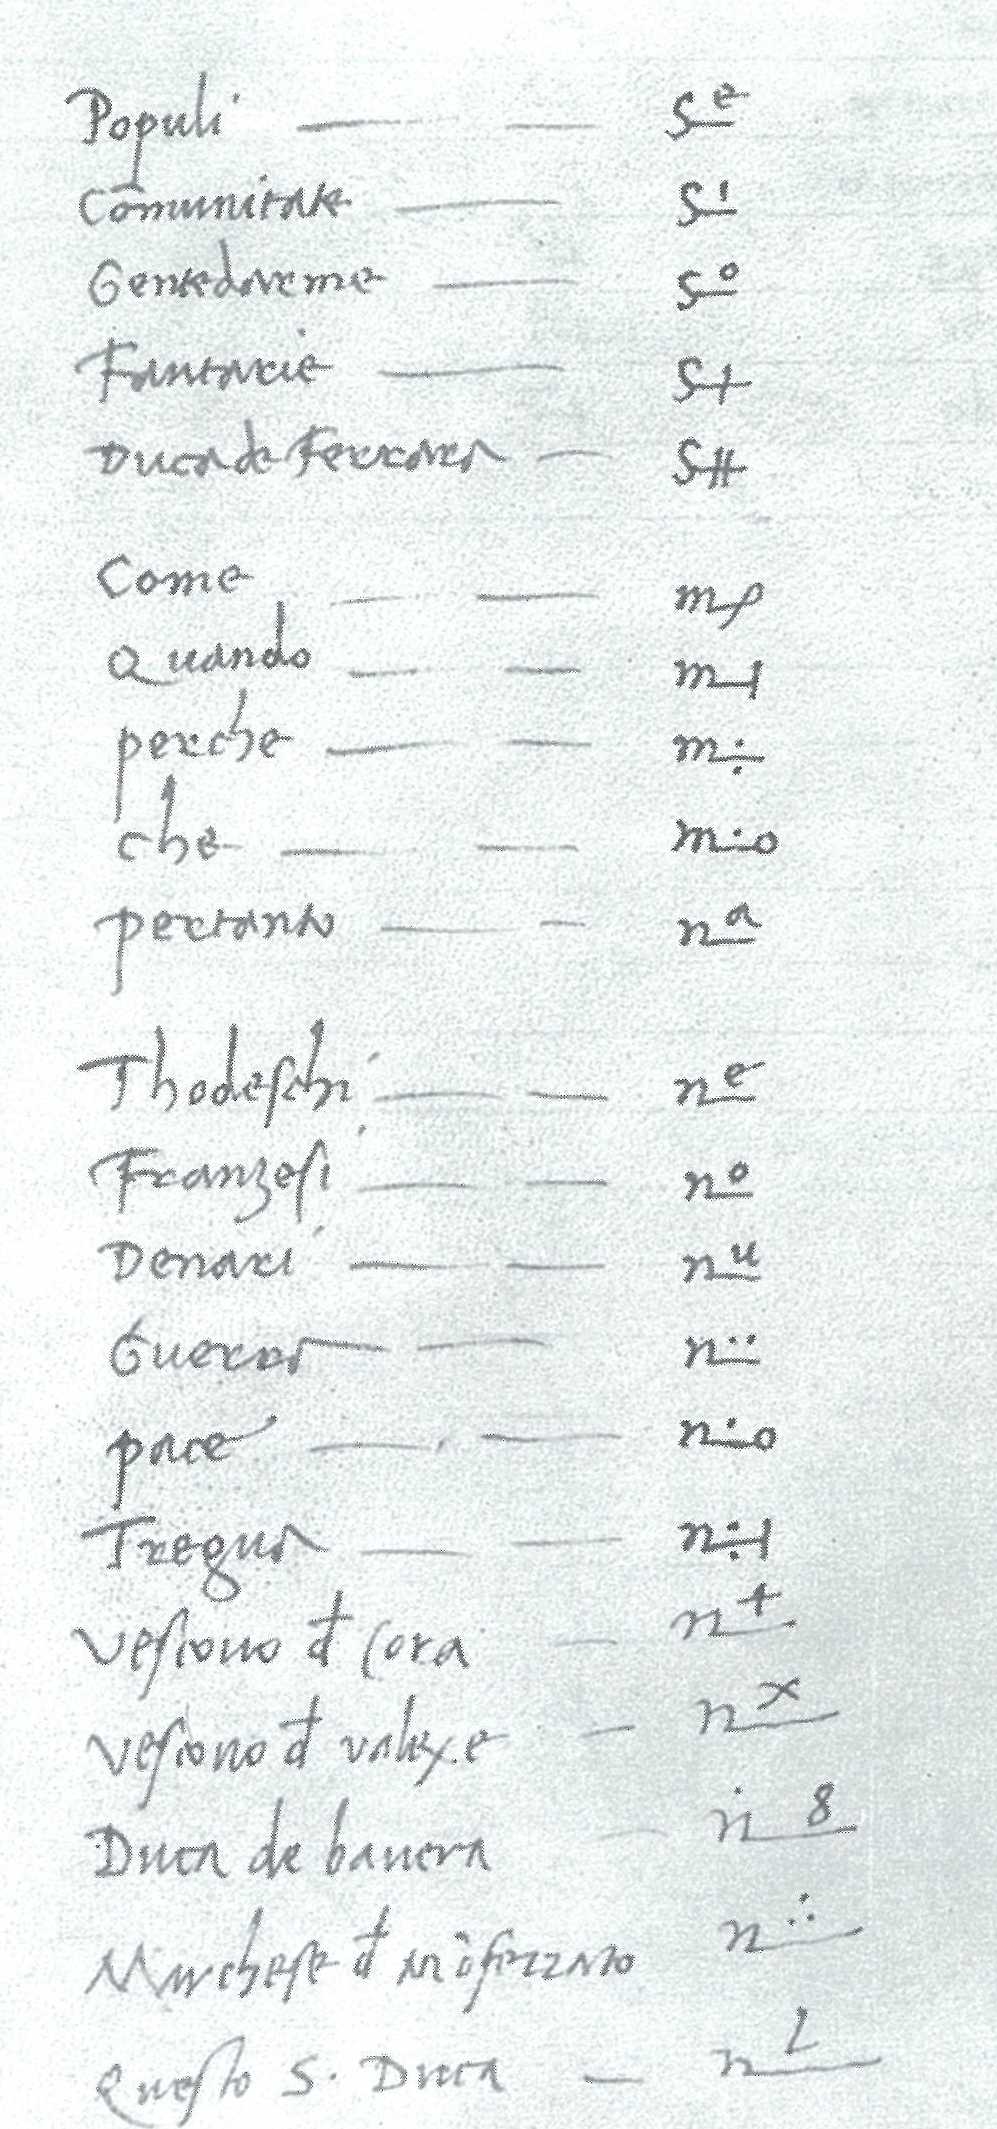 Populi — — S e
Cōmunitate — S ı
Gentedarme — S o
Fantarie — S +
Duca de Ferrara — S #
Come — — m p
Quando — — m ⊣
perche — — m ÷
che — — m ∸ o
pertanto — - n a
Thodeschi — — n e
Franzesi — — n o
Denari — — n u
Guerra — — n ¨
pace — — n ∸ o
Tregua — — n ÷ ⊣
Vescouo đ Cora — n +
Vescouo đ valexe — n x
Duca de bauera — ṅ 8
Marchese đ mōferrato n ∴
Questo S. Duca — n L